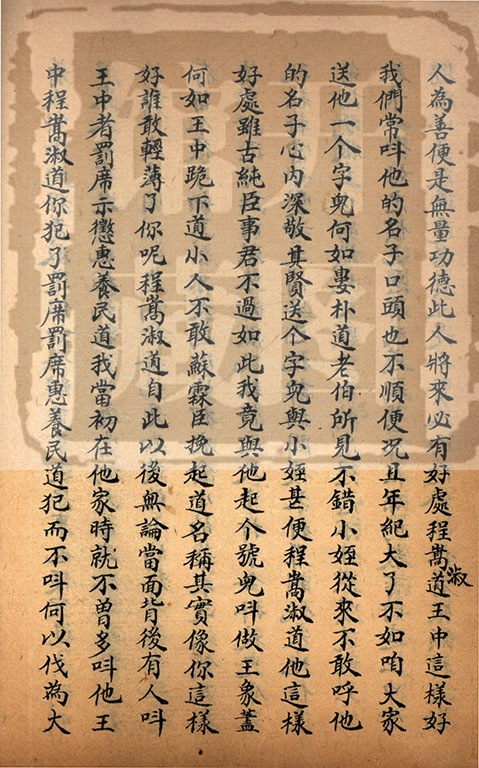 人為善便是無量功德此人將來必有好處程嵩淑道王中這樣好
我們常呌他的名子口頭也不順便况且年紀大了不如咱大家
送他一个字兒何如婁朴道老伯所見不錯小姪從來不敢呼他
的名子心內深敬其賢送个字兒與小姪甚便程嵩淑道他這樣
好處雖古純臣事君不過如此我竟與他起个號兒呌做王象藎
何如王中跪下道小人不敢蘇霖臣挽起道名稱其實像你這樣
好誰敢輕薄了你呢程嵩淑道自此以後無論當面背後有人呌
王中者罰席示懲惠養民道我當初在他家時就不曾多呌他王
中程嵩淑道你犯了罰席罰席惠養民道犯而不呌何以伐為大